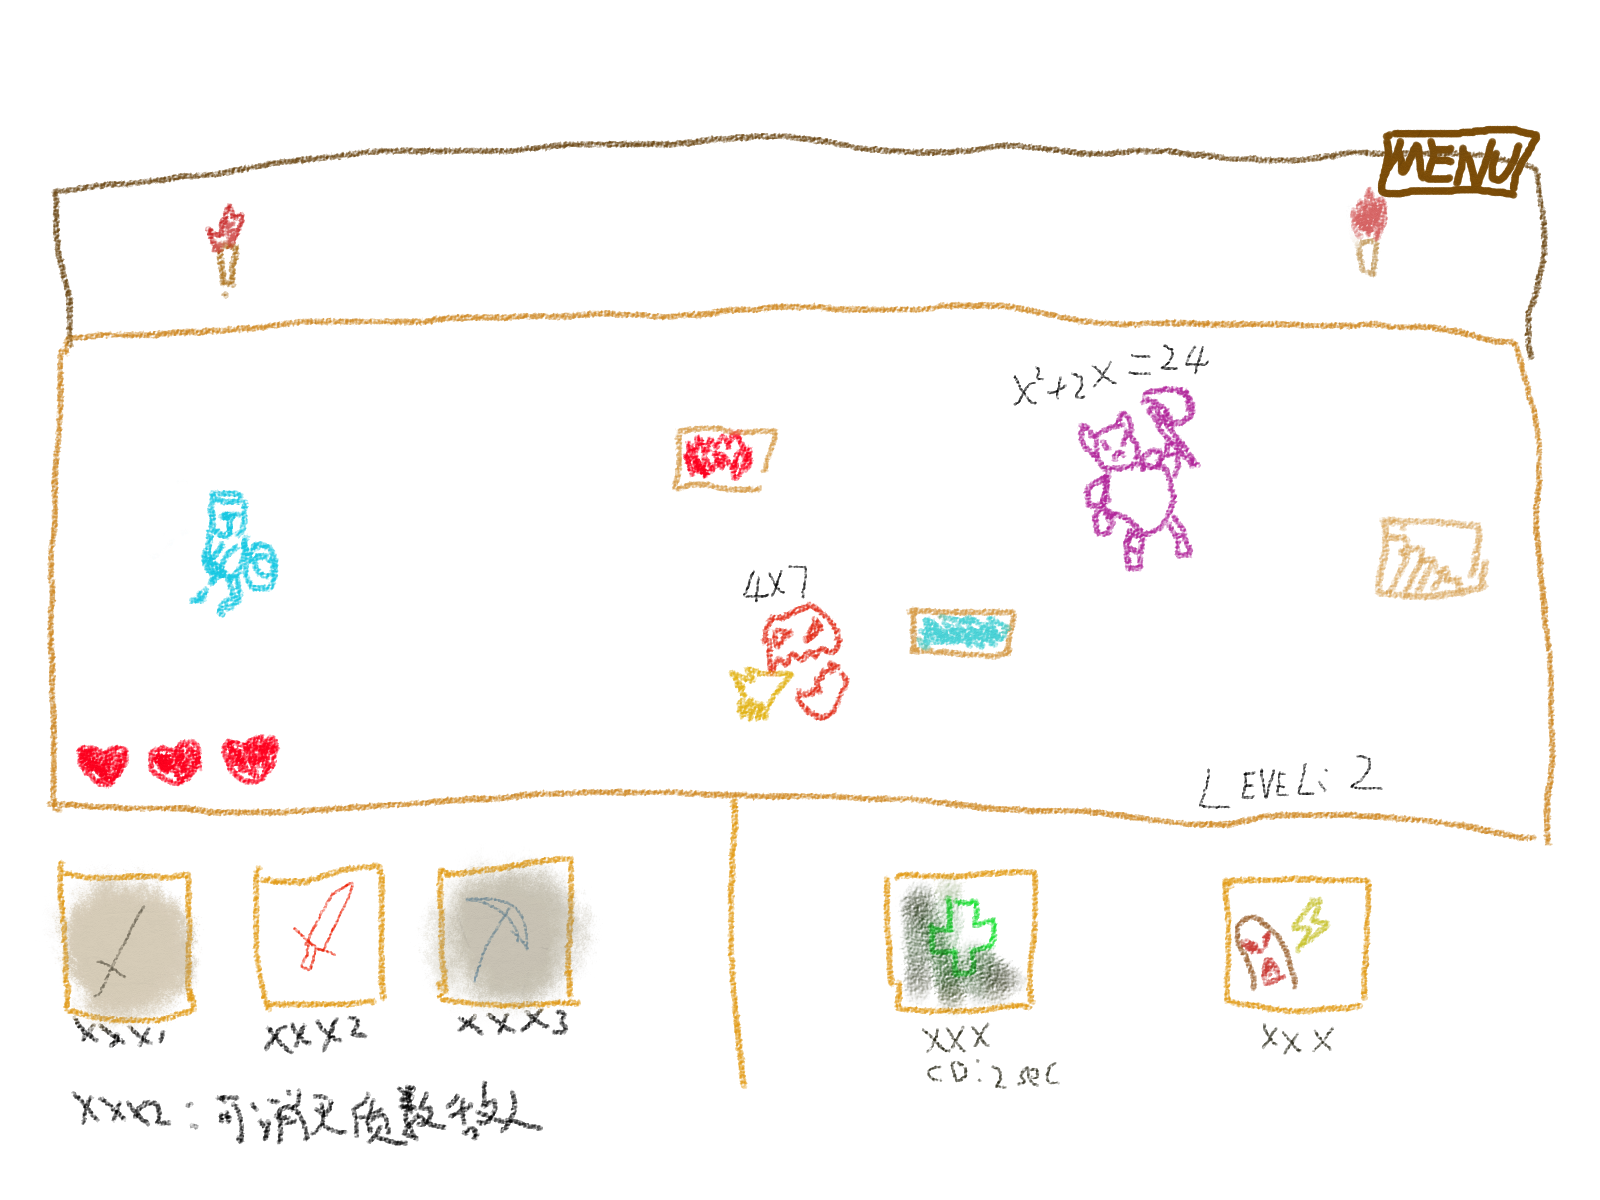 MENU
x²+2x=24
4×7
LEVEL: 2
XXX1
XXX2
XXX3
XXX
CD:2 sec
XXX
XXX2:可消灭质数敌人